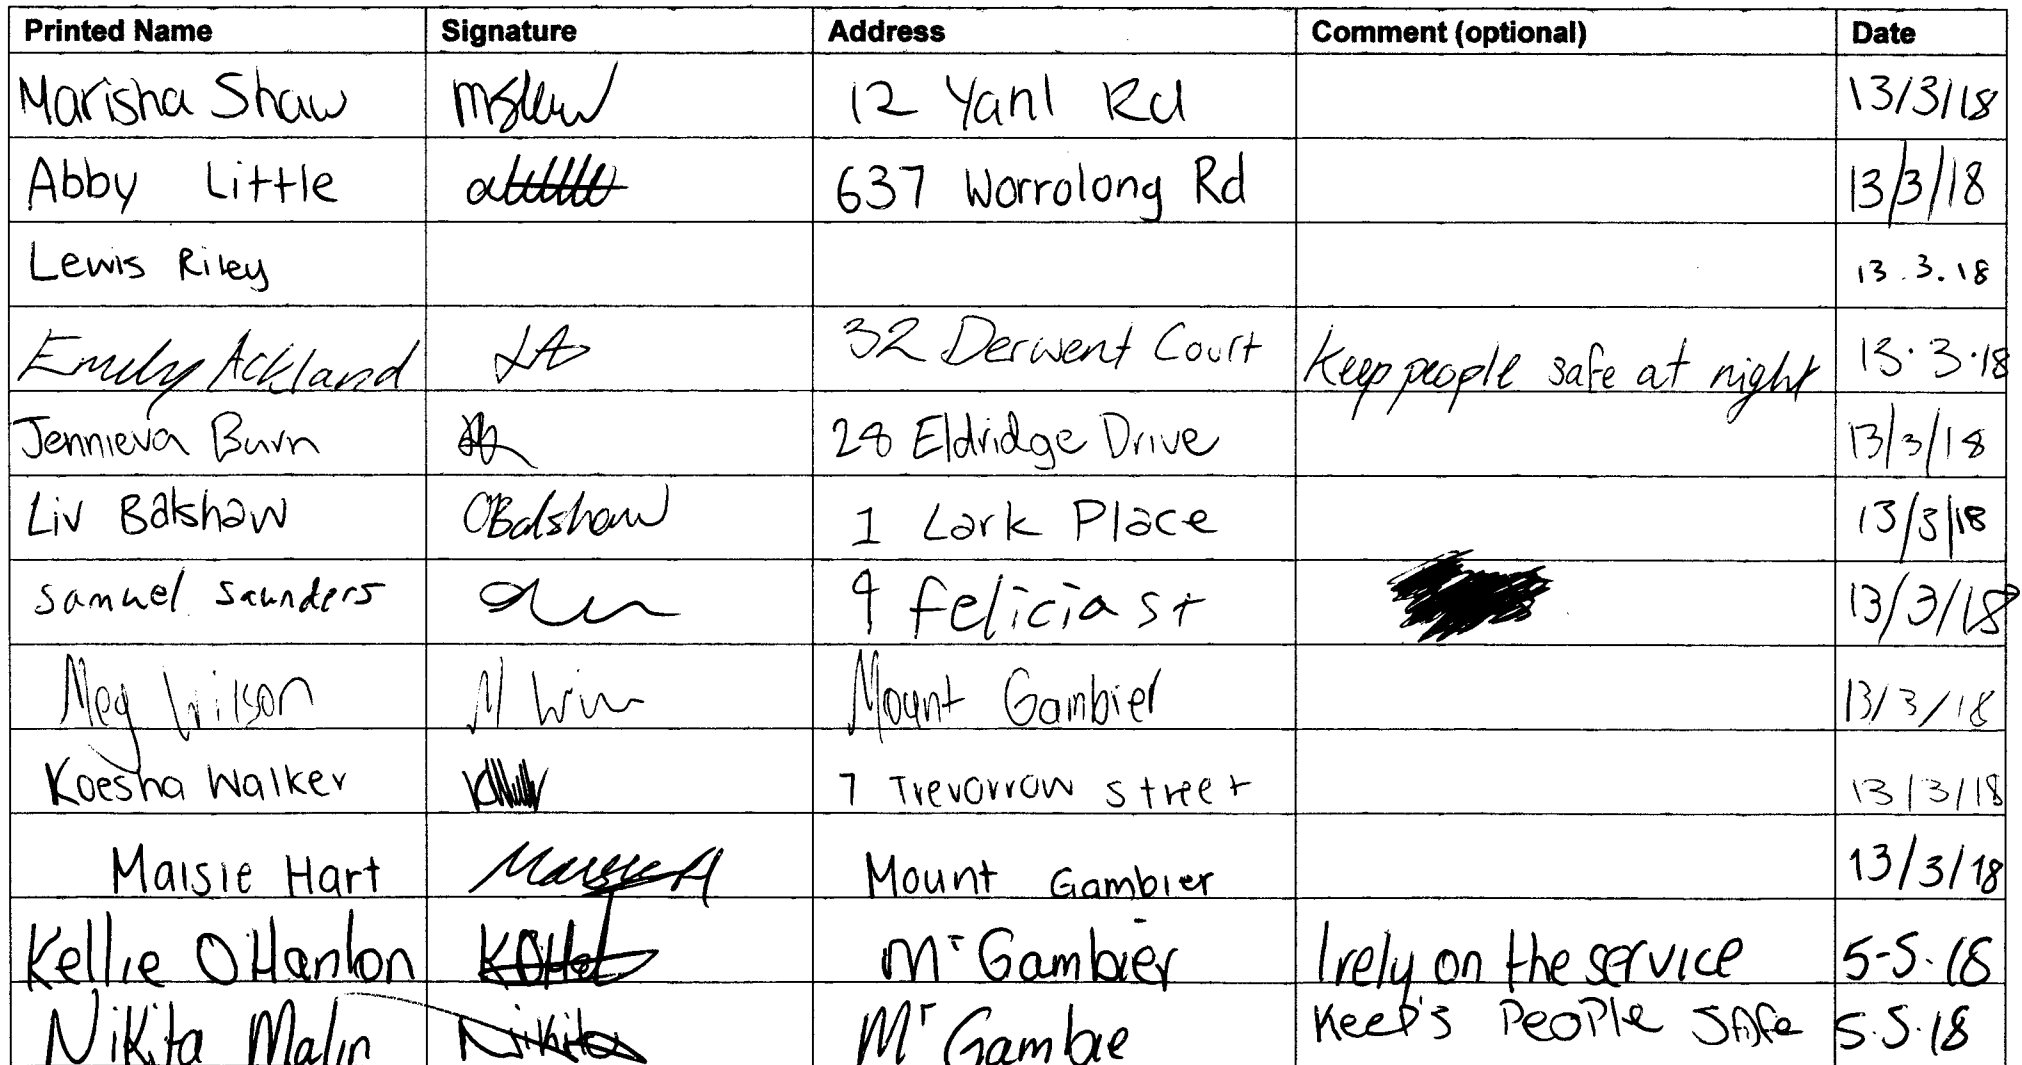 Printed Name Signature Address Comment (optional) Date
Marisha Shaw MShaw 12 Yanl Rd 13/3/18
Abby Little 637 Worrolong Rd 13/3/18
Lewis Riley 13.3.18
Emily Ackland 32 Derwent Court Keep people safe at night 13.3.18
Jennieva Burn 28 Eldridge Drive 13/3/18
Liv Balshaw OBalshaw 1 Lark Place 13/3/18
Samuel Saunders 9 felicia st 13/3/18
Meg Wilson Mount Gambier 13/3/18
Koesha Walker 7 Trevorrow street 13/3/18
Maisie Hart Maisie H Mount Gambier 13/3/18
Kellie OHanlon Mt Gambier I rely on the service 5-5.18
Nikita Malin Nikita Mt Gambie Keep's PEOPle SAfe 5.5.18